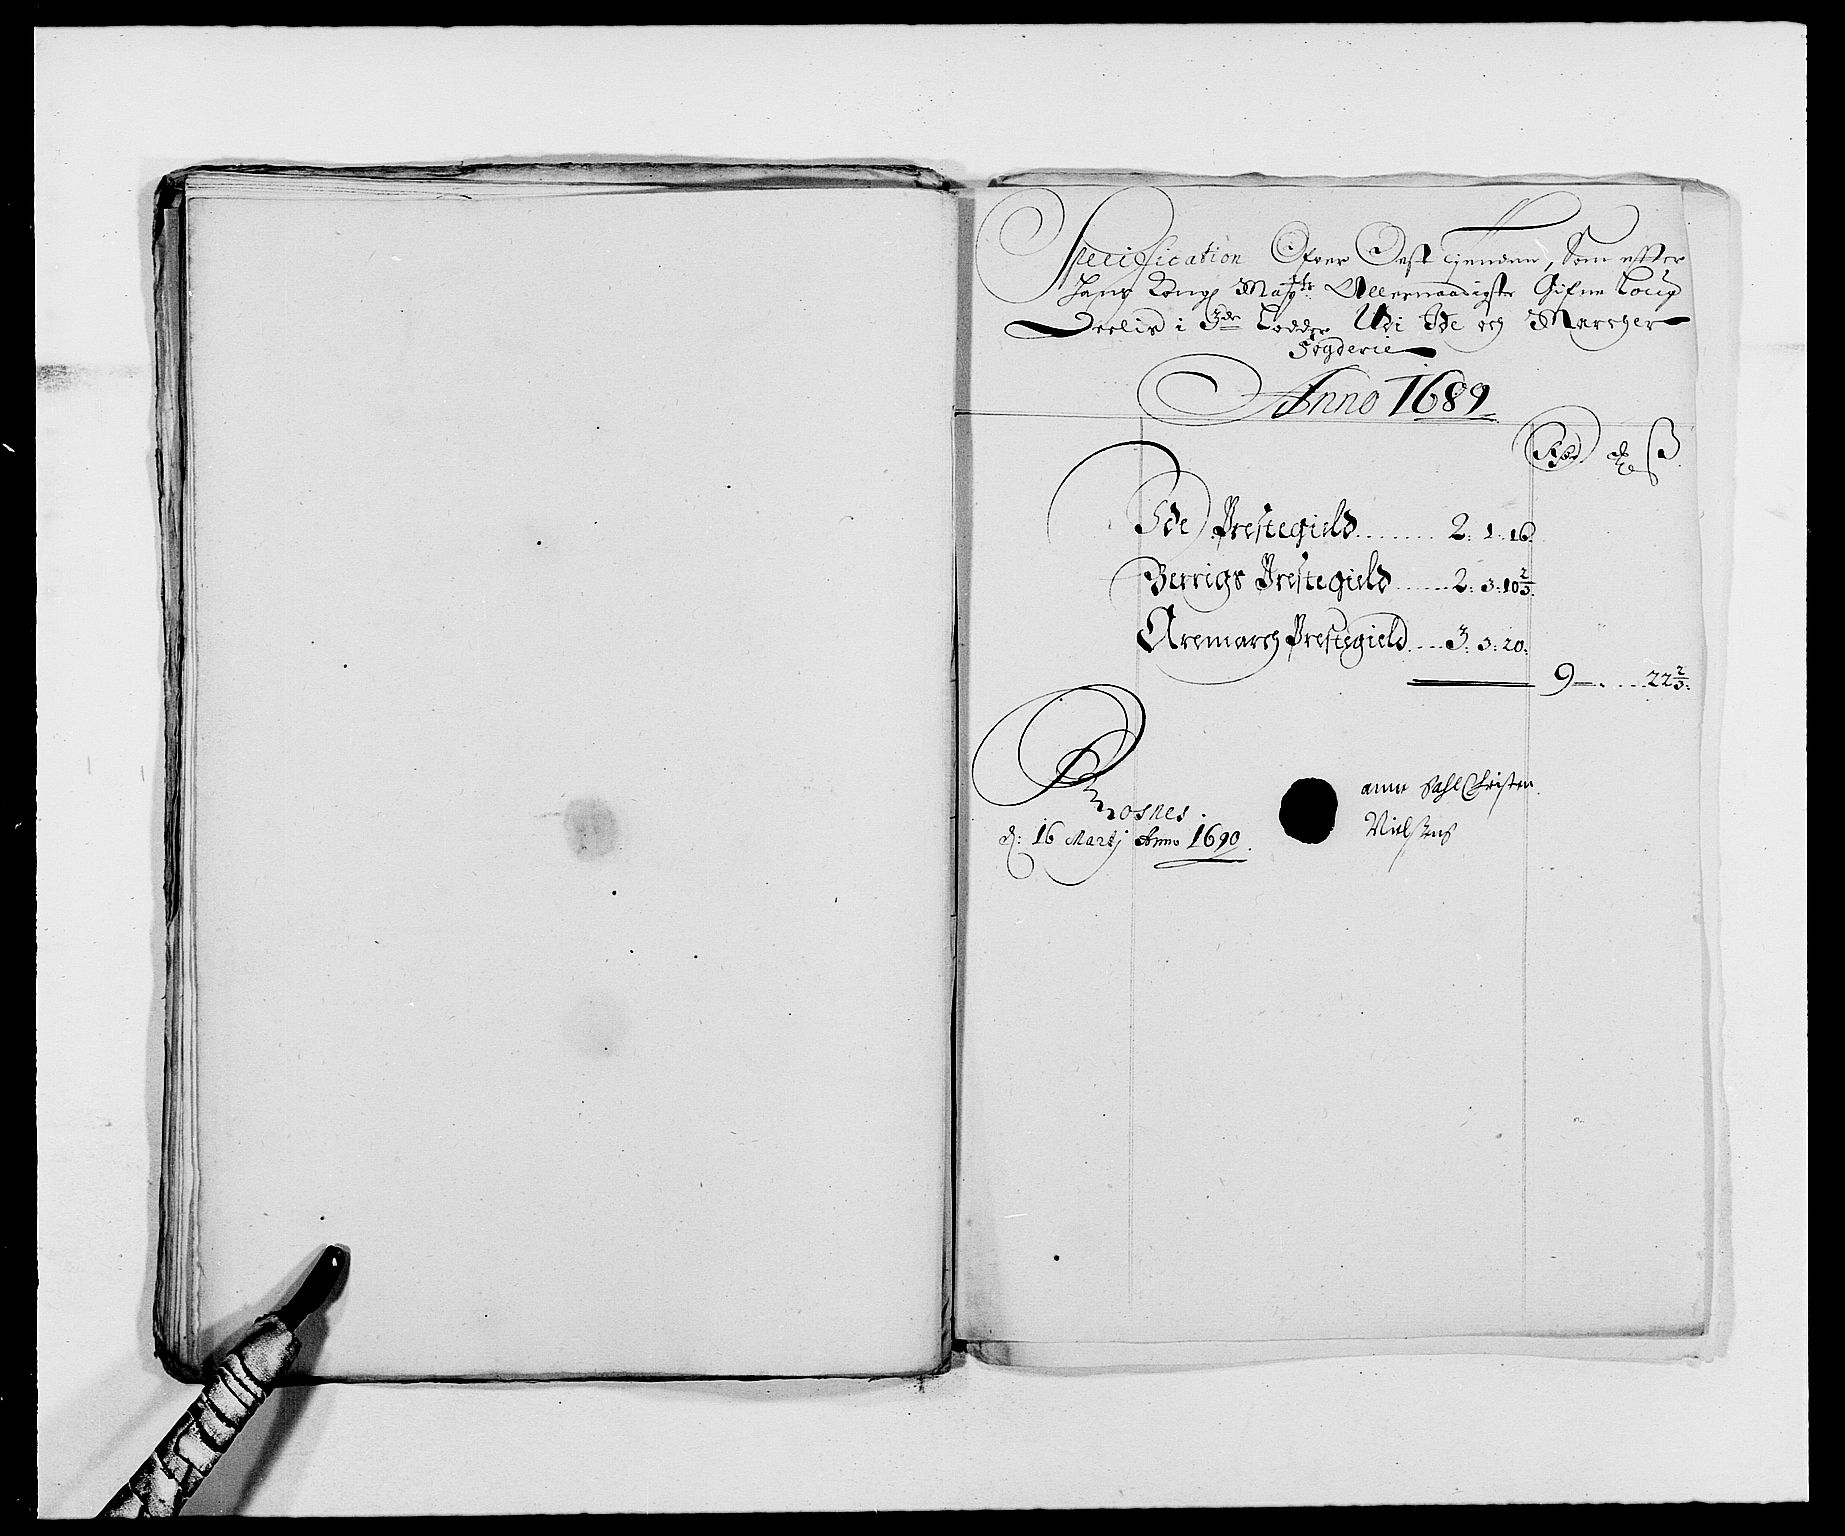 Specification Ofver Ost tienden, Som efter
Hans Kong Maytz Allernaadigste Gifne Loug
Deelis i 3de Lodder Udi Ide och Marcher
Fogderie
Anno 1689
Rdr ß
Ide Prestegield ........ 2: 1: 16:
Berrigs Prestegield ...... 2: 3: 10 2/3:
Aremarch Prestegield .... 3: 3: 20:
9 — . . . . 22 2/3:
Rosnes.
d: 16 Martj Anno 1690.
anne Sahl Christen
Nielsens